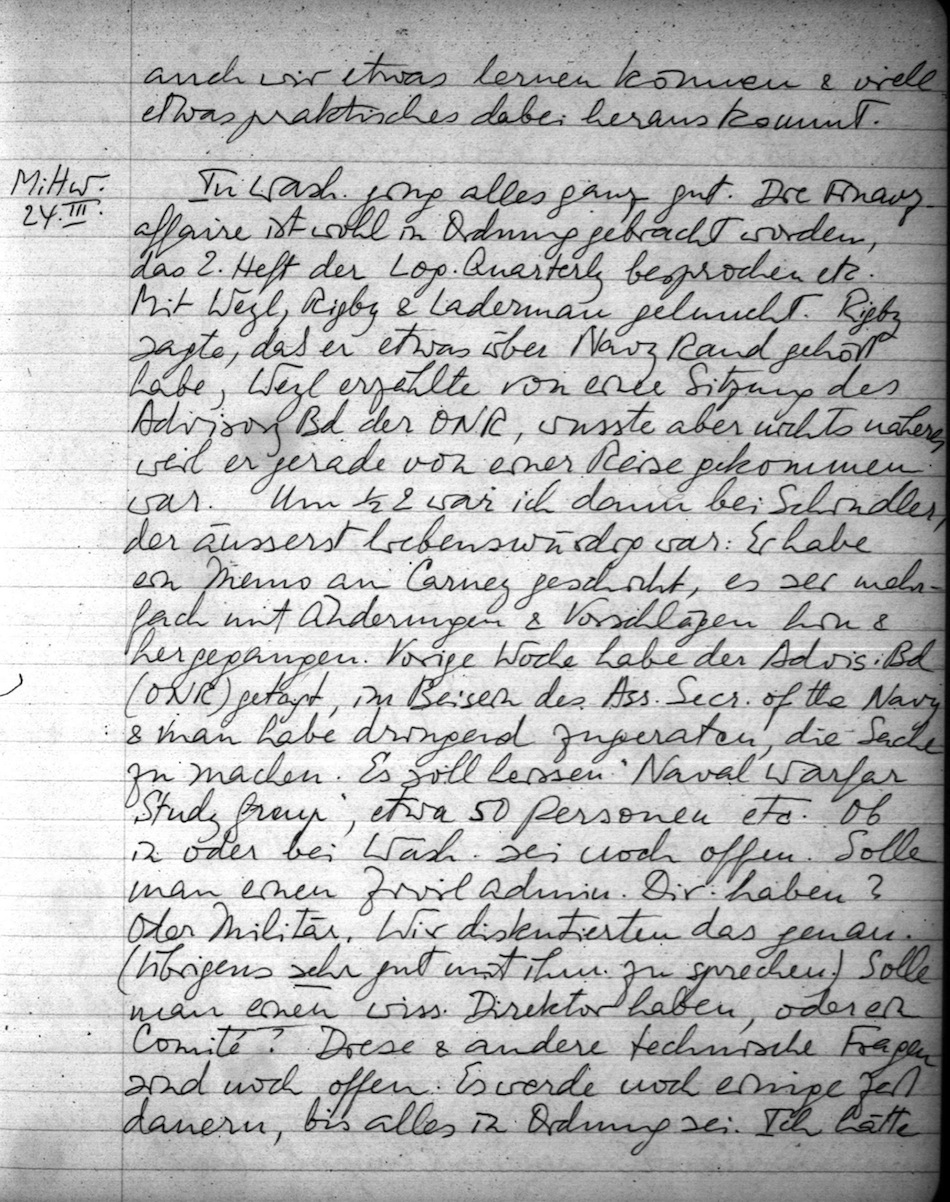 auch wir etwas lernen können & viell.
etwas praktisches dabei herauskommt.
Mittw.
24.III.
In Wash. ging alles ganz gut. Die Finanz-
affaire ist wohl in Ordnung gebracht worden,
das 2. Heft der Log. Quarterly besprochen etc.
Mit Weyl, Rigby & Laderman geluncht. Rigby
sagte, daß er etwas über Navy Rand gehört
habe, Weyl erzählte von einer Sitzung des
Advisory Bd der ONR, wusste aber nichts näheres,
weil er gerade von einer Reise gekommen
war. Um ½ 2 war ich dann bei Schindler,
der äusserst liebenswürdig war: Er habe
ein Memo an Carney geschickt, es sei mehr-
fach mit Änderungen & Vorschlägen hin &
hergegangen. Vorige Woche habe der Advis. Bd
(ONR) getagt, im Beisein des Ass. Secr. of the Navy
& man habe dringend zugeraten, die Sache
zu machen. Es soll heissen "Naval Warfar
Study Group", etwa 50 Personen etc. Ob
in oder bei Wash. sei noch offen. Solle
man einen Zivil admin. Dir. haben?
Oder Militär. Wir diskutierten das genau.
(Übrigens sehr gut mit ihm zu sprechen.) Solle
man einen wiss. Direktor haben, oder ein
Comité? Diese & andere technische Fragen
sind noch offen. Es werde noch einige Zeit
dauern, bis alles in Ordnung sei. Ich hätte